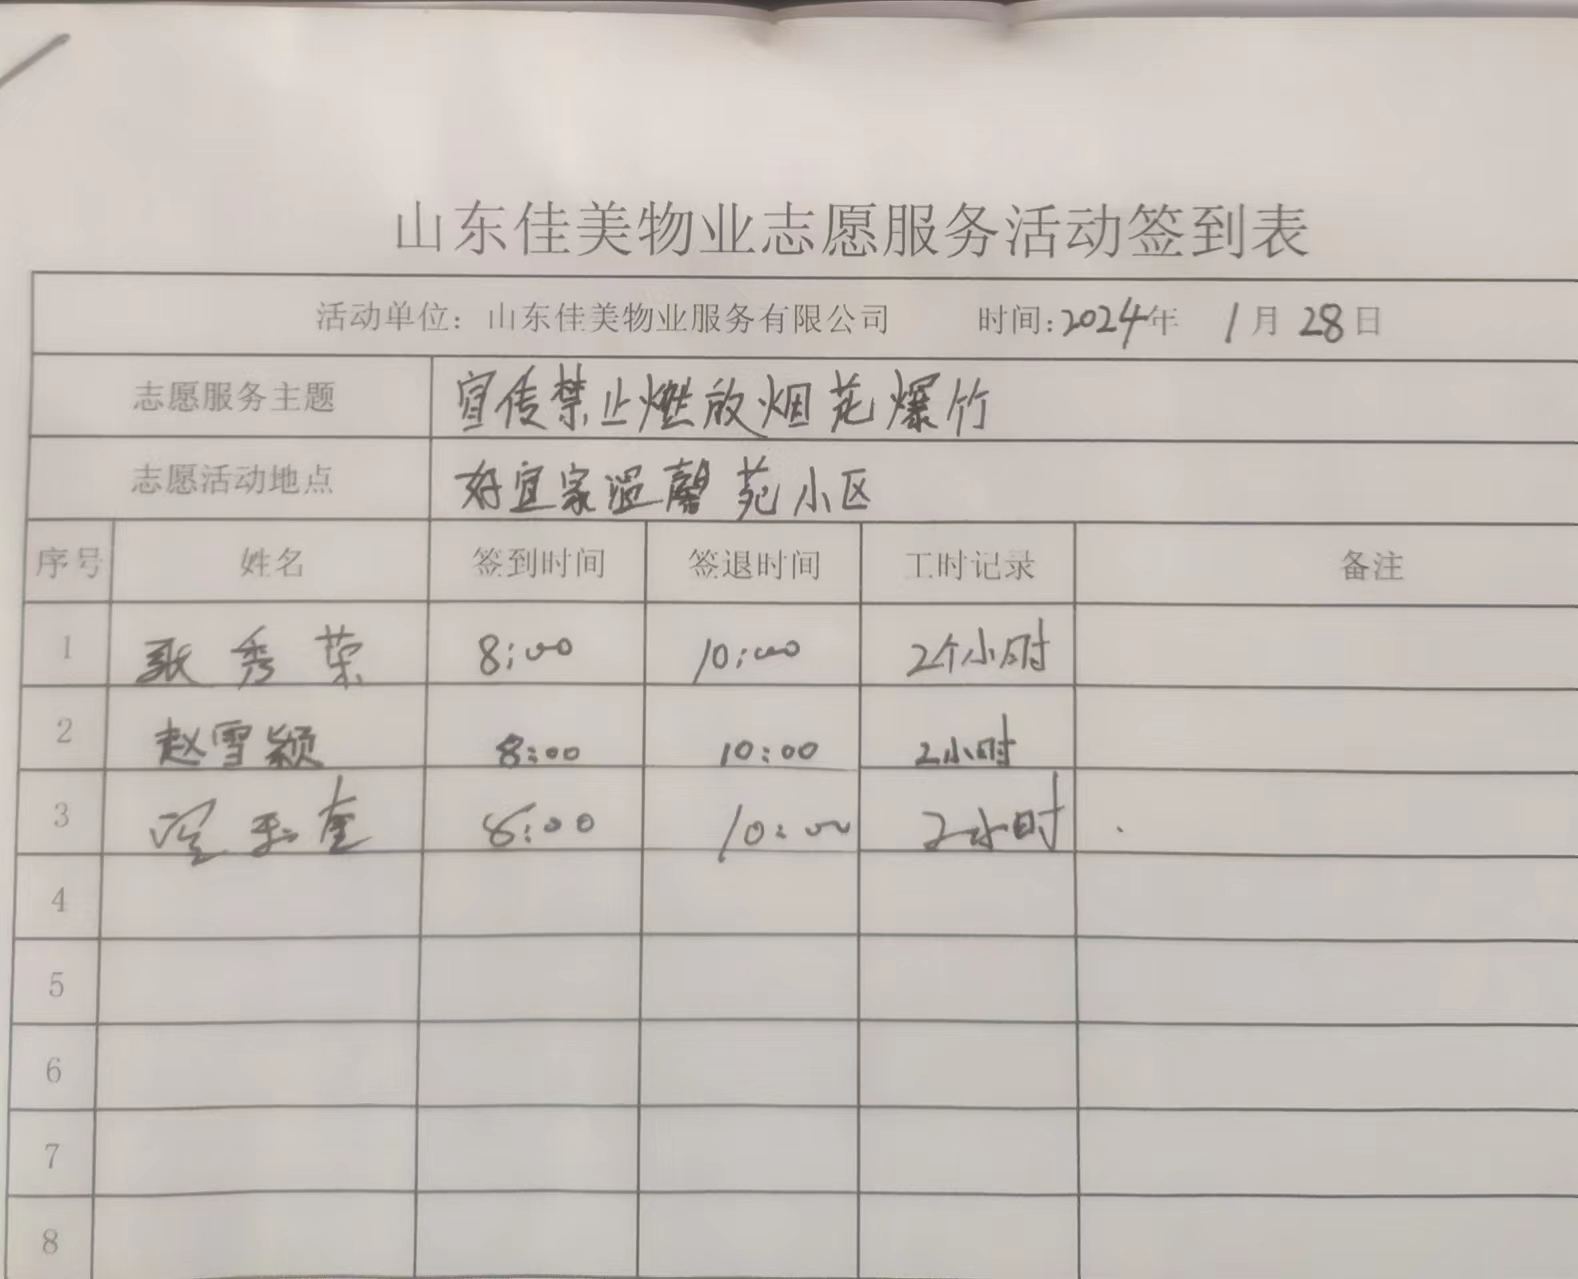 山东佳美物业志愿服务活动签到表
活动单位：山东佳美物业服务有限公司 时间：2024年 1月 28日
志愿服务主题 宣传禁止燃放烟花爆竹
志愿活动地点 好宜家温馨苑小区
序号 姓名 签到时间 签退时间 工时记录 备注
1 张秀荣 8:00 10:00 2个小时
2 赵雪颖 8:00 10:00 2小时
3 8:00 10:00 2小时
4
5
6
7
8